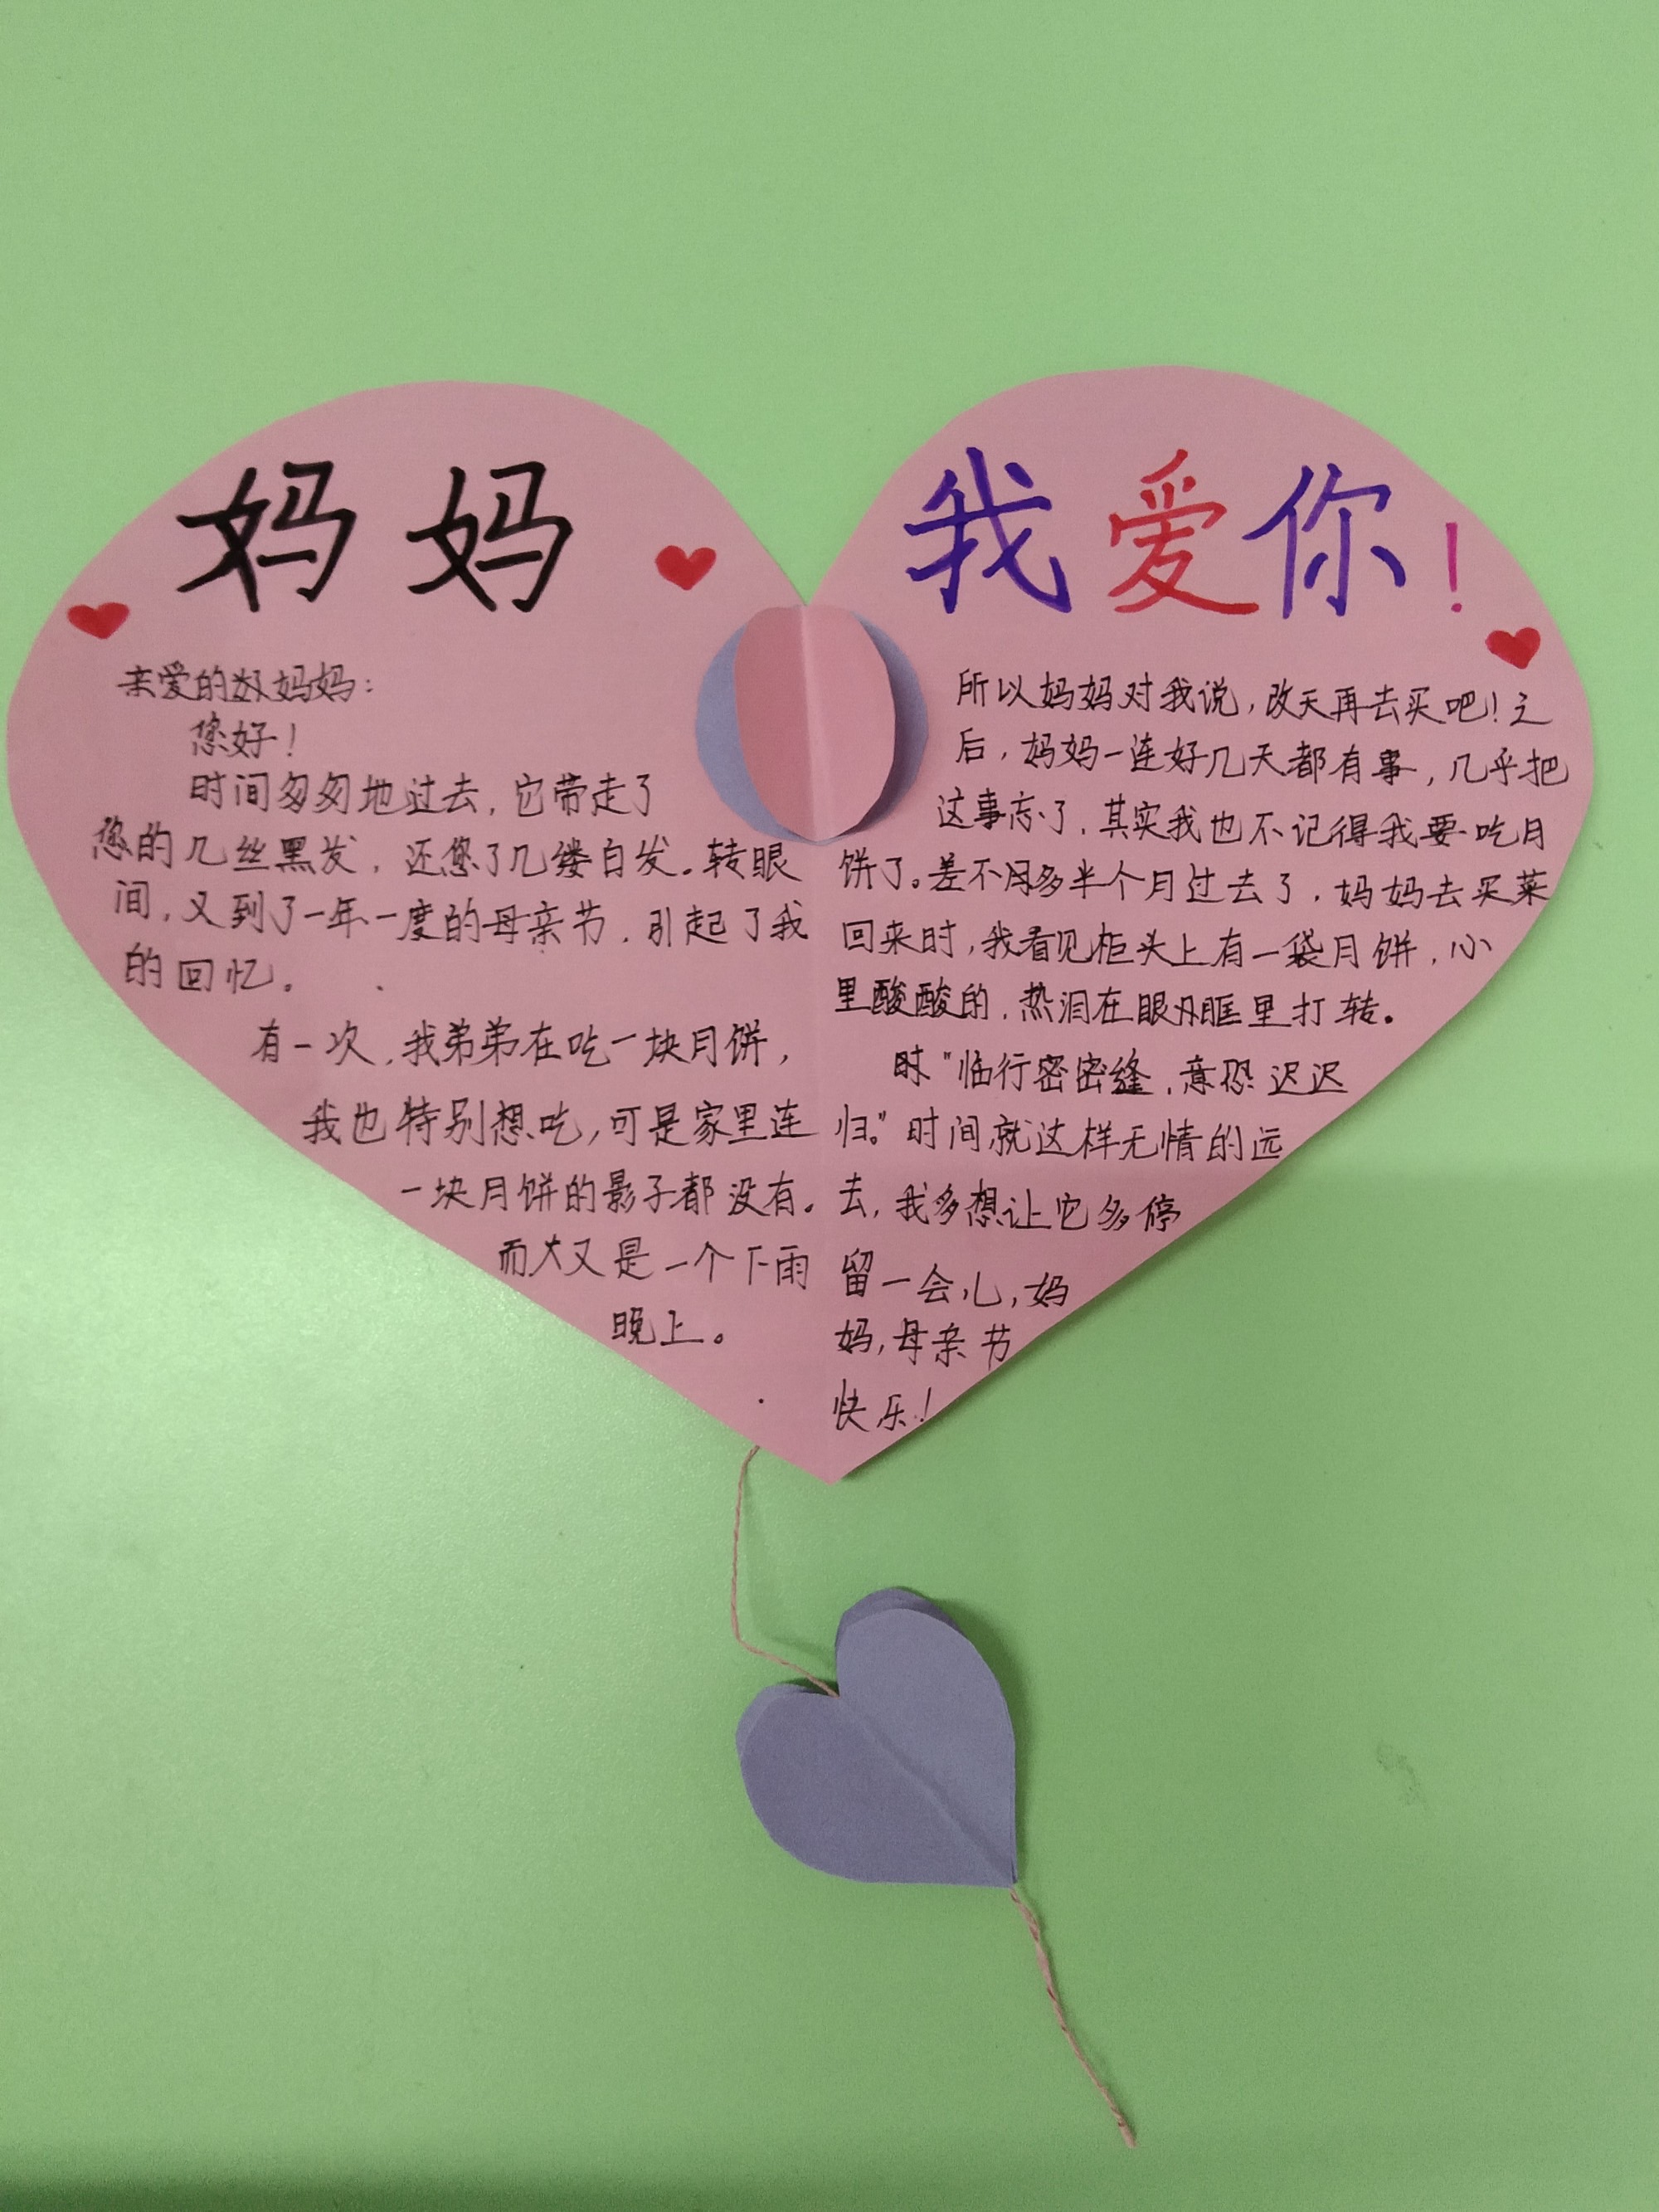 妈妈
亲爱的妈妈：
您好！
时间匆匆地过去，它带走了
您的几丝黑发，还您了几缕白发。转眼
间，又到了一年一度的母亲节，引起了我
的回忆。
有一次，我弟弟在吃一块月饼，
我也特别想吃，可是家里连
一块月饼的影子都没有。
而大又是一个下雨
晚上。
我爱你！
所以妈妈对我说，改天再去买吧！之
后，妈妈一连好几天都有事，几乎把
这事忘了，其实我也不记得我要吃月
饼了。差不多半个月过去了，妈妈去买菜
回来时，我看见柜头上有一袋月饼，心
里酸酸的，热泪在眼眶里打转。
时“临行密密缝，意恐迟迟
归。”时间就这样无情的远
去，我多想让它多停
留一会儿，妈
妈，母亲节
快乐！